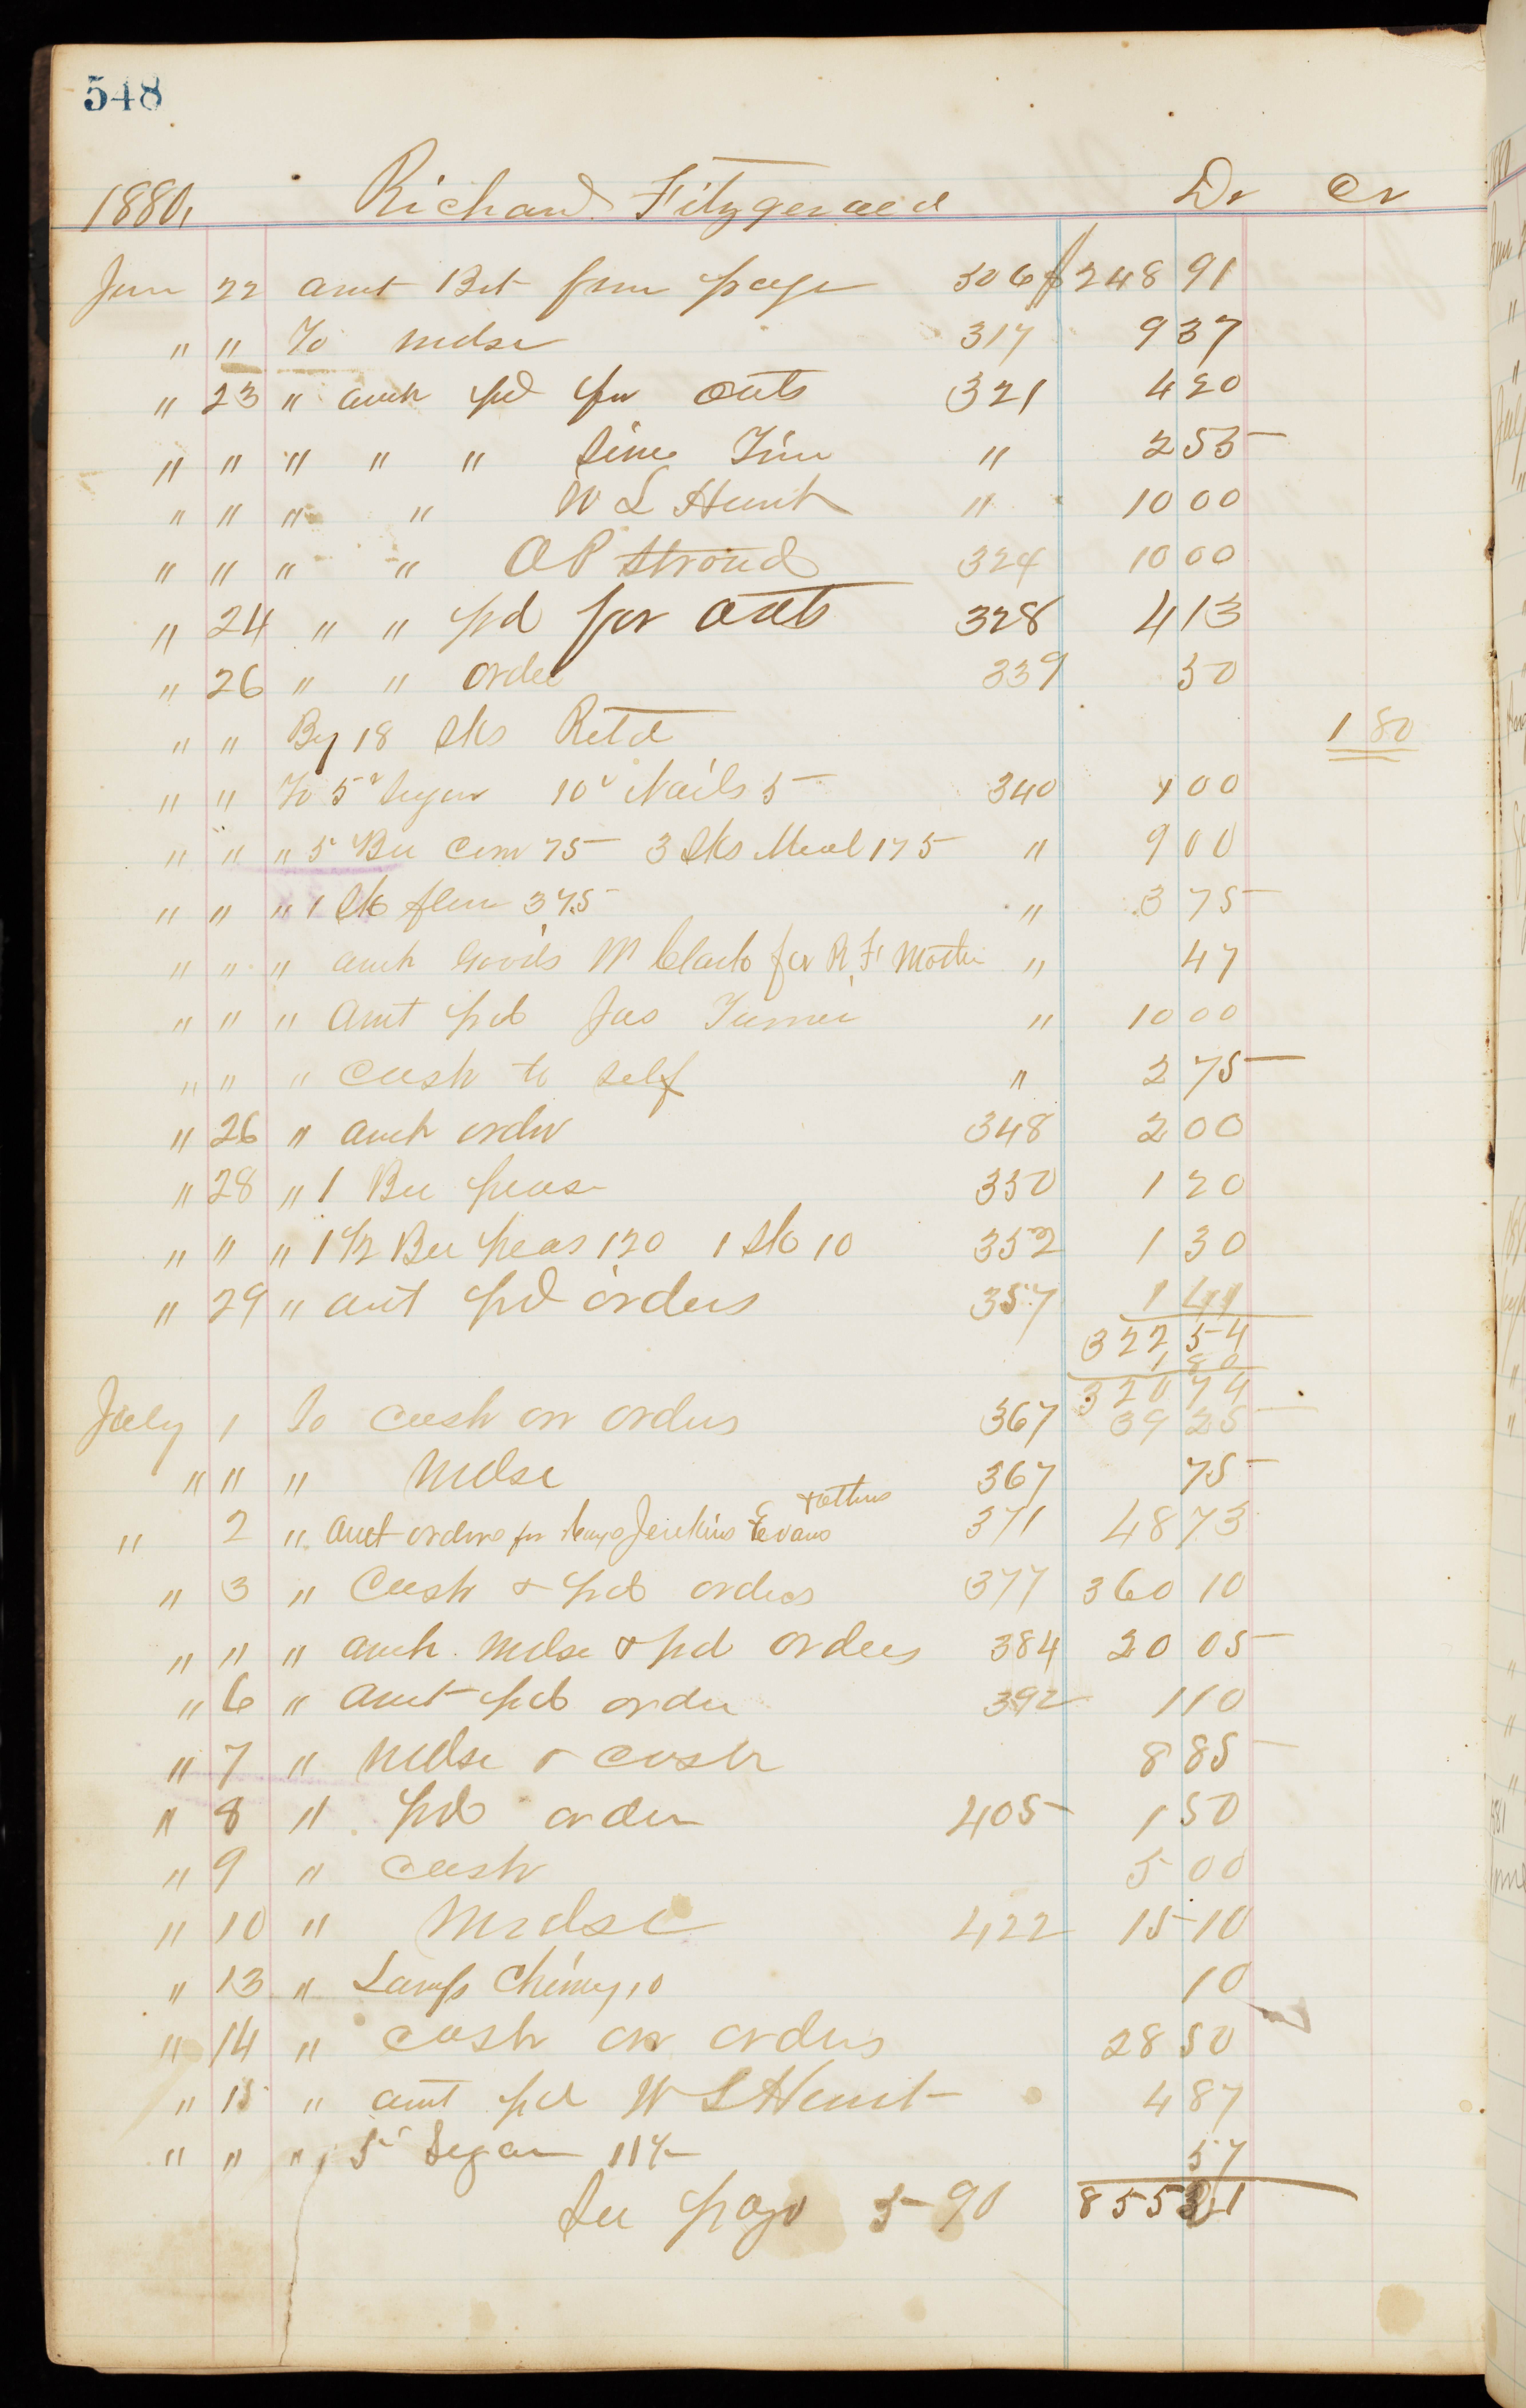 548
1880, Richard Fitzgerald Dr Cr
Jun 22 amt Bst from page 506 $248 91
" " To mdse 317 9 37
" 23 " amt pd for oats 321 4 20
" " " " " Time " 2 55
" " " " W L Hunt " 10 00
" " " " O P Stroud 324 10 00
" 24 " " pd for oats 328 4 13
" 26 " " order 339 50
" " By 18 sks Retd 1 80
" " To 5 Sugar 10 Nails 5 340 1 00
" " " 5 Bu Corn 75 3 sks Meal 175 " 9 00
" " " 1 sk flour 375 " 3 75
" " " amt Goods M Clark for R F Mother " 47
" " " amt pd Jas Turner " 10 00
" " " cash to self " 2 75
" 26 " amt order 348 2 00
" 28 " 1 Bu peas 350 1 20
" " " 1 1/2 Bu peas 120 1 sk 10 352 1 30
" 29 " amt pd orders 357 1 41
322 54
1 80
320 74
July 1 To cash on orders 367 39 25
" " " Mdse 367 75
" 2 " amt orders for Jenkins Evans & others 371 48 73
" 3 " Cash & pd orders 377 360 10
" " " amt Mdse & pd orders 384 20 05
" 6 " amt pd order 392 1 10
" 7 " Mdse & cash 8 85
" 8 " pd order 405 1 50
" 9 " cash 5 00
" 10 " Mdse 422 15 10
" 13 " Lamp Chimy 10 10
" 14 " cash on orders 28 50
" 15 " amt pd W L Hunt 4 87
" " " 5 Sugar 11 1/2 57
See page 590 855 21